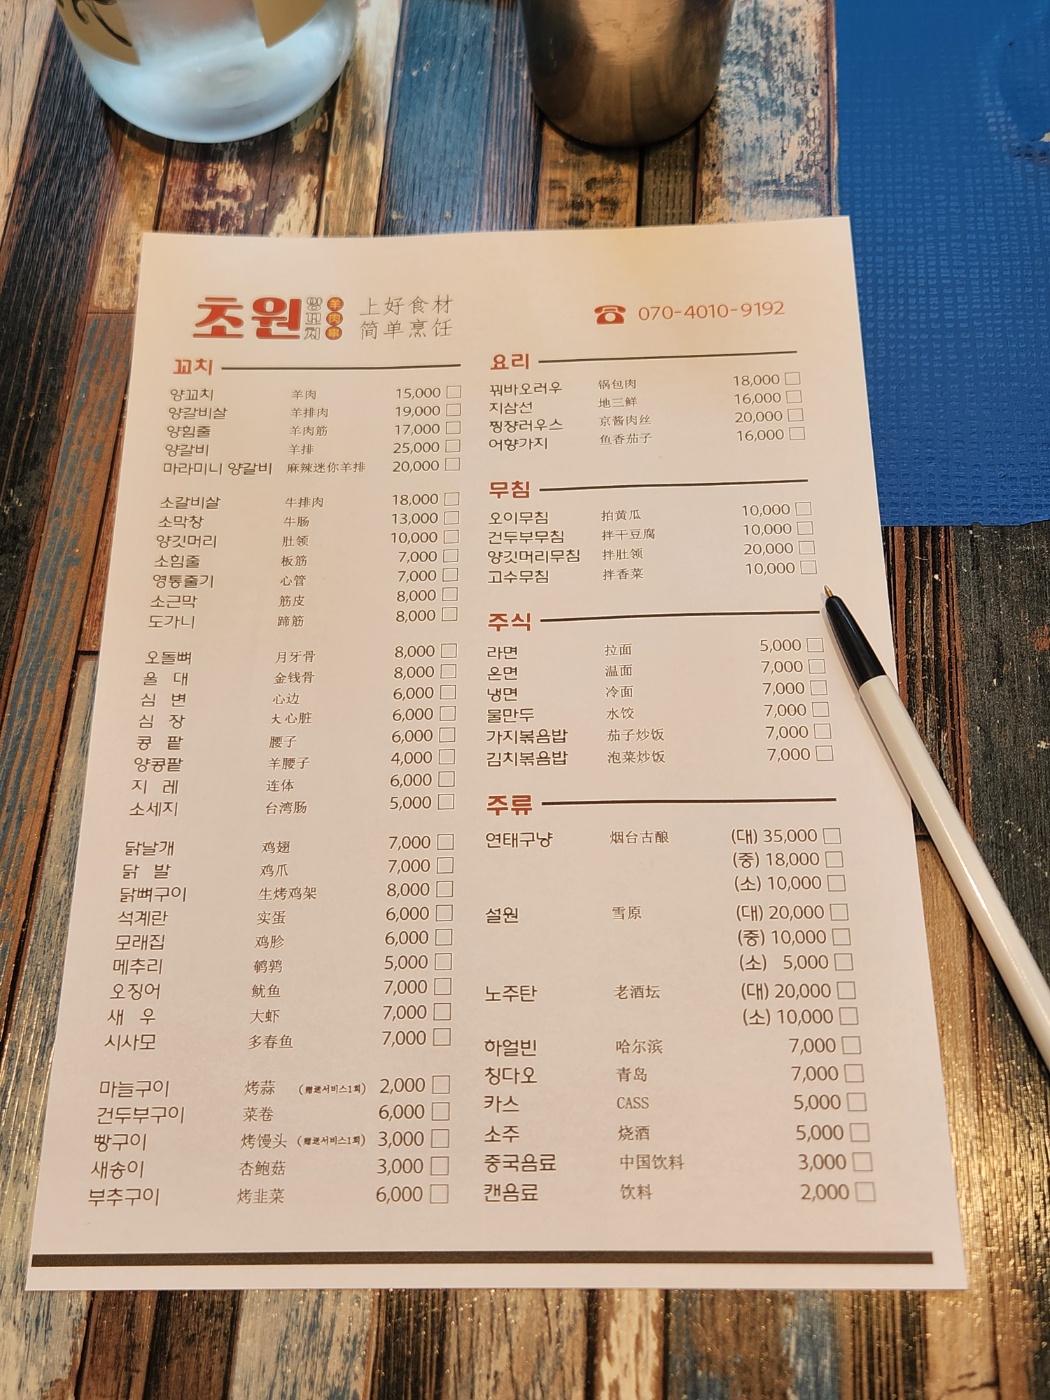 초원 양꼬치 羊肉串 上好食材
简单烹饪
☎ 070-4010-9192
꼬치
양꼬치 羊肉 15,000
양갈비살 羊排肉 19,000
양힘줄 羊肉筋 17,000
양갈비 羊排 25,000
마라미니 양갈비 麻辣迷你羊排 20,000
소갈비살 牛排肉 18,000
소막창 牛肠 13,000
양깃머리 肚领 10,000
소힘줄 板筋 7,000
영통줄기 心管 7,000
소근막 筋皮 8,000
도가니 蹄筋 8,000
오돌뼈 月牙骨 8,000
울 대 金钱骨 8,000
심 변 心边 6,000
심 장 大心脏 6,000
콩 팥 腰子 6,000
양콩팥 羊腰子 4,000
지 레 连体 6,000
소세지 台湾肠 5,000
닭날개 鸡翅 7,000
닭 발 鸡爪 7,000
닭뼈구이 生烤鸡架 8,000
석계란 实蛋 6,000
모래집 鸡胗 6,000
메추리 鹌鹑 5,000
오징어 鱿鱼 7,000
새 우 大虾 7,000
시사모 多春鱼 7,000
마늘구이 烤蒜 (赠送서비스1회) 2,000
건두부구이 菜卷 6,000
빵구이 烤馒头 (赠送서비스1회) 3,000
새송이 杏鲍菇 3,000
부추구이 烤韭菜 6,000
요리
꿔바오러우 锅包肉 18,000
지삼선 地三鲜 16,000
찡쟝러우스 京酱肉丝 20,000
어향가지 鱼香茄子 16,000
무침
오이무침 拍黄瓜 10,000
건두부무침 拌干豆腐 10,000
양깃머리무침 拌肚领 20,000
고수무침 拌香菜 10,000
주식
라면 拉面 5,000
온면 温面 7,000
냉면 冷面 7,000
물만두 水饺 7,000
가지볶음밥 茄子炒饭 7,000
김치볶음밥 泡菜炒饭 7,000
주류
연태구냥 烟台古酿 (대) 35,000
(중) 18,000
(소) 10,000
설원 雪原 (대) 20,000
(중) 10,000
(소) 5,000
노주탄 老酒坛 (대) 20,000
(소) 10,000
하얼빈 哈尔滨 7,000
칭다오 青岛 7,000
카스 CASS 5,000
소주 烧酒 5,000
중국음료 中国饮料 3,000
캔음료 饮料 2,000